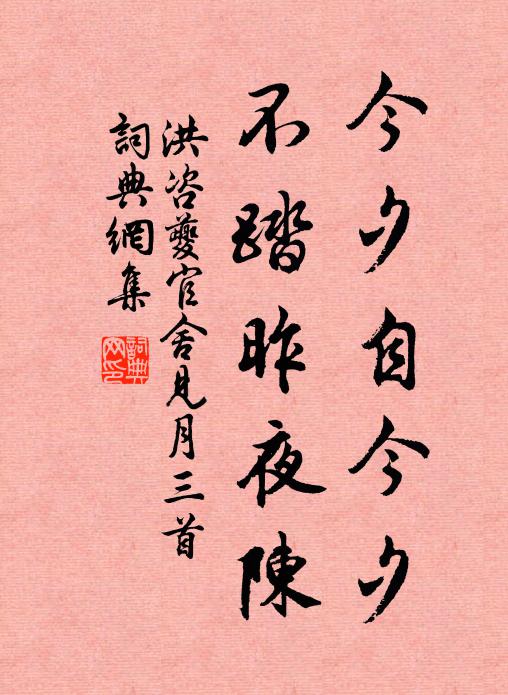 今夕自今夕
不踏昨夜陳
洪咨夔官舍見月三首
詞典網集
詞典
网印